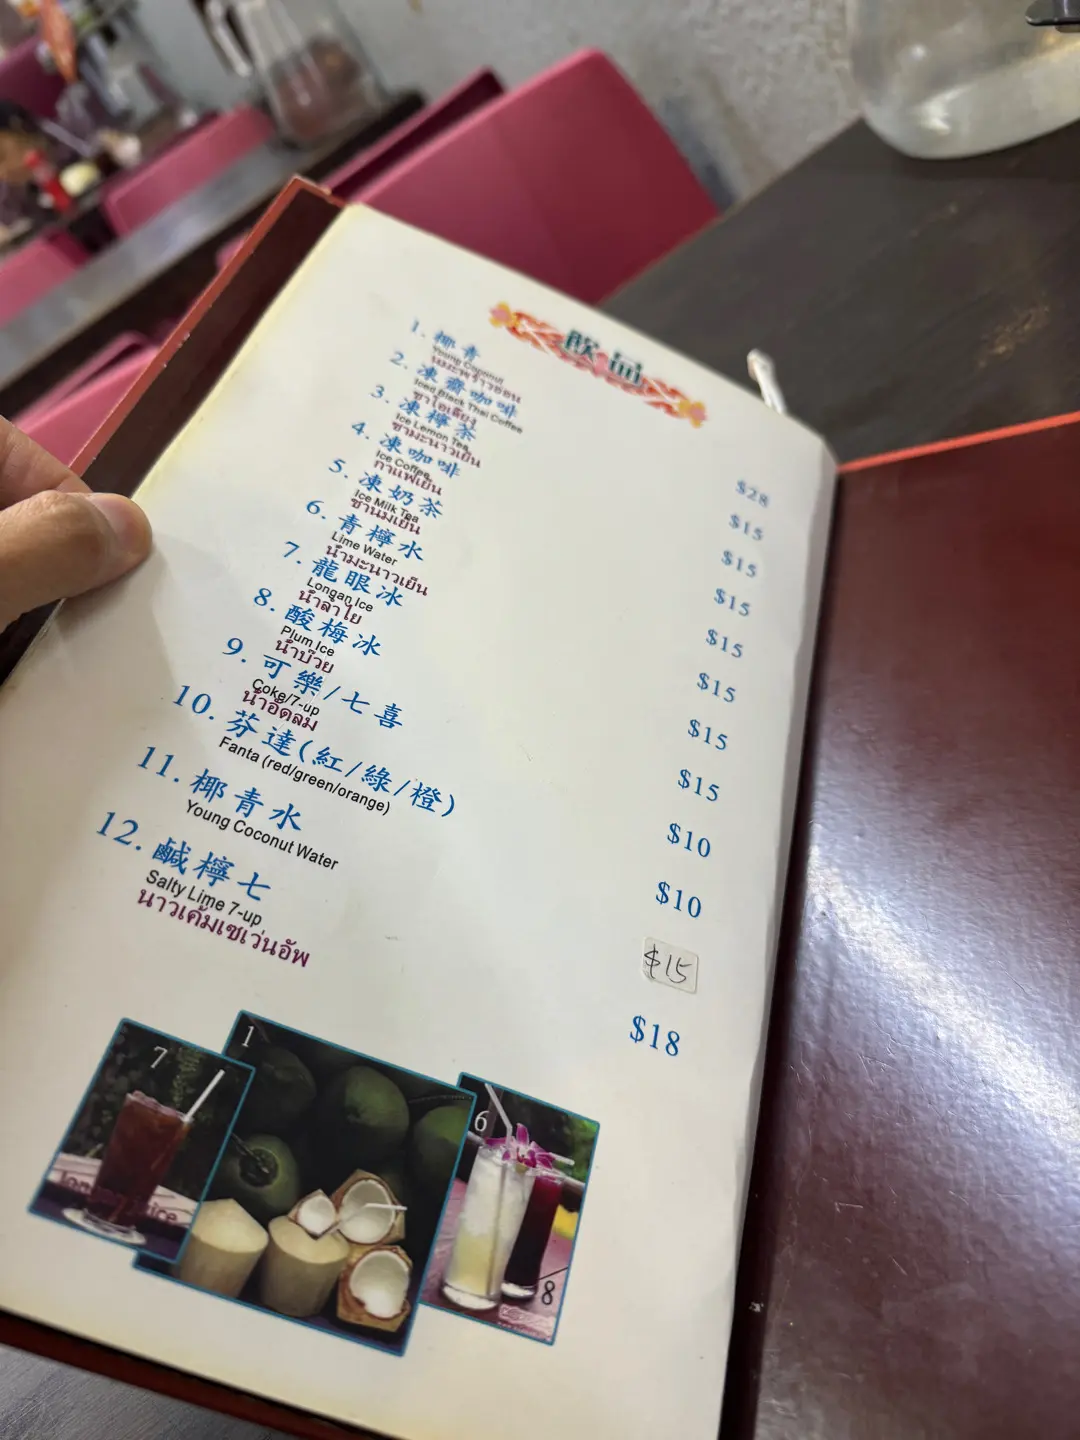 飲品
1. 椰青 $28
Young Coconut
นมะพร้าวอ่อน
2. 凍齋咖啡 $15
Iced Black Thai Coffee
ชาโอเลี้ยง
3. 凍檸茶 $15
Ice Lemon Tea
ชามะนาวเย็น
4. 凍咖啡 $15
Ice Coffee
กาแฟเย็น
5. 凍奶茶 $15
Ice Milk Tea
ชานมเย็น
6. 青檸水 $15
Lime Water
น้ำมะนาวเย็น
7. 龍眼冰 $15
Longan Ice
น้ำลำไย
8. 酸梅冰 $15
Plum Ice
น้ำบ๊วย
9. 可樂/七喜 $10
Coke/7-up
น้ำอัดลม
10. 芬達(紅/綠/橙) $10
Fanta (red/green/orange)
11. 椰青水 $15
Young Coconut Water
12. 鹹檸七 $18
Salty Lime 7-up
นาวเค็มเซเว่นอัพ
7
1
6
8